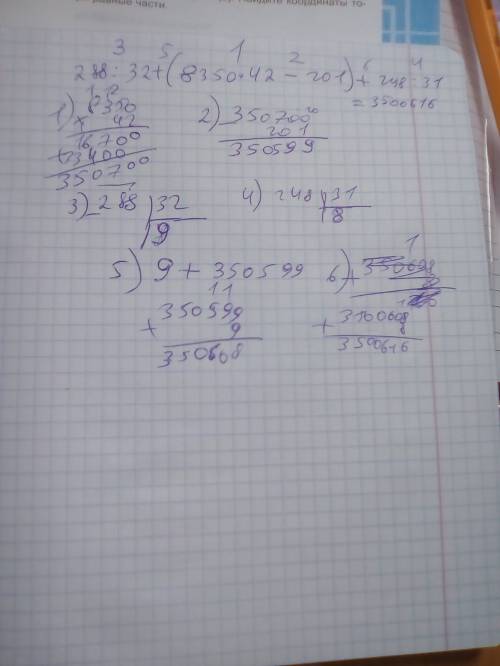 равные части.
Найдите координаты то-
3 5 1 2 6 4
288 : 32 + (8350 · 42 − 201) + 248 : 31
= 3500616
1) 8350
× 42
16700
+ 33400
350700
2) 350700
201
350599
3) 288 | 32
9
4) 248 | 31
8
5) 9 + 350599
11
350599
+ 9
350608
6)
1
3500608
+ 8
3500616